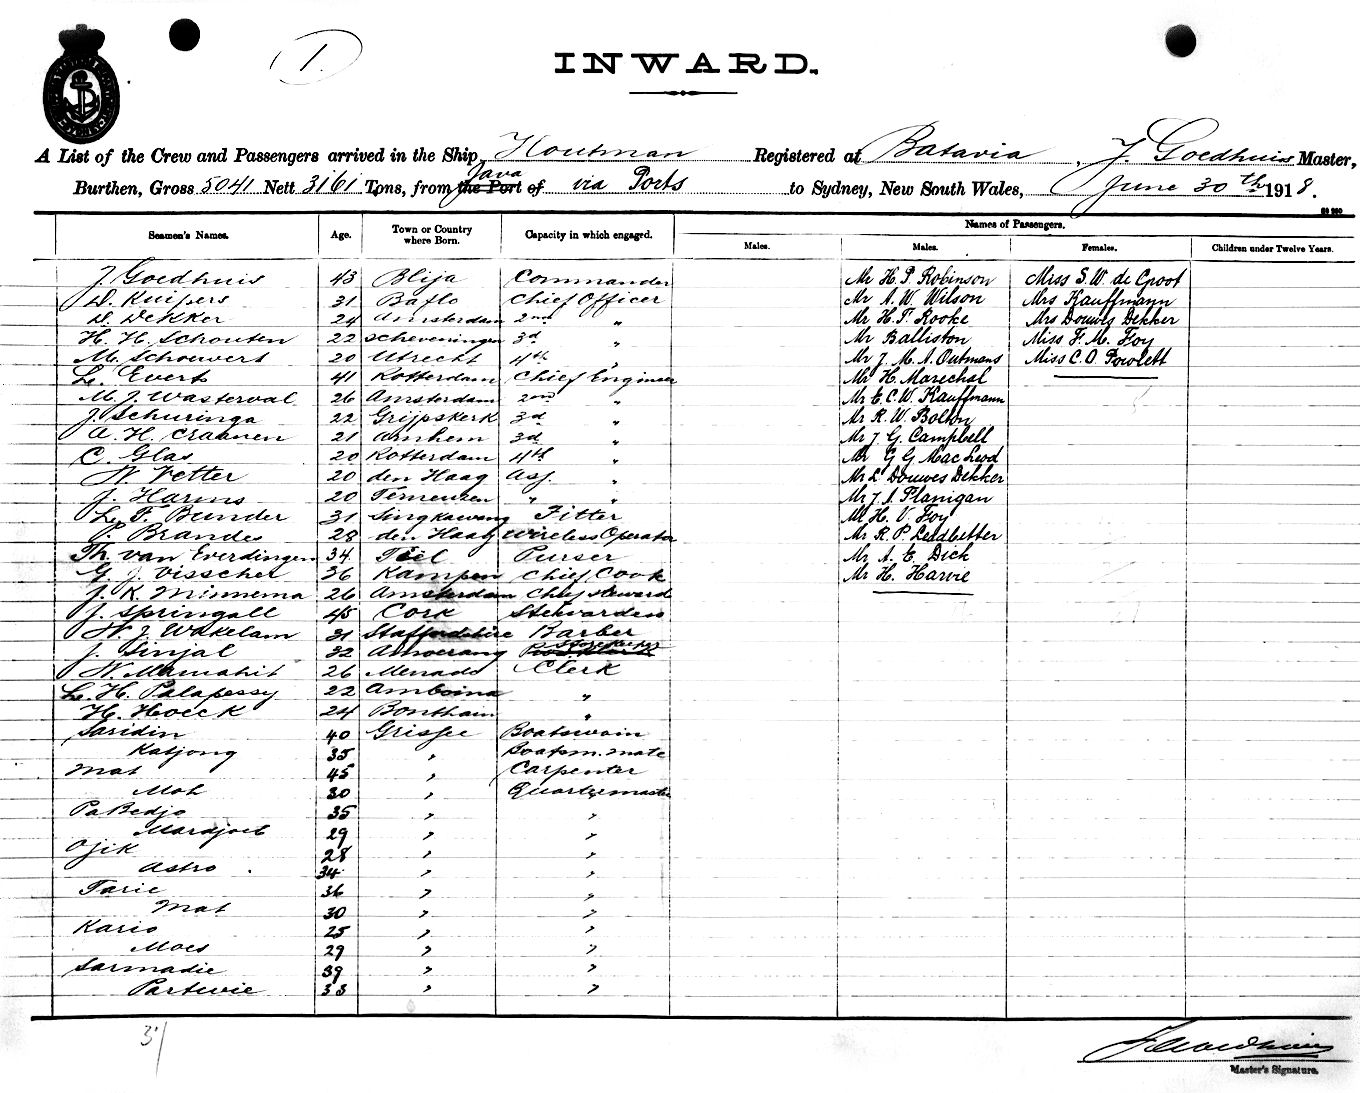 1.
INWARD.
A List of the Crew and Passengers arrived in the Ship, Houtman Registered at Batavia, J. Goedhuis Master,
Burthen, Gross 5041 Nett 3161 Tons, from the Port of Java via Ports to Sydney, New South Wales, June 30th 1918.
Names of Passengers.
Seamen's Names. Age. Town or Country where Born. Capacity in which engaged. Males. Males. Females. Children under Twelve Years.
J. Goedhuis 43 Blija Commander Mr H. P. Robinson Miss S. W. de Groot
D. Kuipers 31 Baflo Chief Officer Mr A. W. Wilson Mrs Kauffmann
D. Dekker 24 Amsterdam 2nd " Mr H. T. Rooke Mrs Douwes Dekker
H. H. Schouten 22 Scheveningen 3d " Mr Balliston Miss F. M. Foy
M. Schouwert 20 Utrecht 4th " Mr J. M. A. Outmans Miss C. O. Powlett
L. Everts 41 Rotterdam Chief Engineer Mr H. Marechal
M. J. Wasterval 26 Amsterdam 2nd " Mr E. C. W. Kauffmann
J. Schuringa 22 Grijpskerk 3d " Mr R. W. Bolton
A. H. Craanen 21 Arnhem 3d " Mr J. G. Campbell
C. Glas 20 Rotterdam 4th " Mr G G MacLeod
W. Vetter 20 den Haag Ass. " Mr L Douwes Dekker
J. Harms 20 " " Mr J. A. Flanigan
L. F. Bunder 31 Singkawang Fitter Mr H. V. Foy
P. Brandes 28 den Haag Wireless Operator Mr R. P. Ledbetter
Th. van Everdingen 34 Tiel Purser Mr A. E. Dick
G. J. Visscher 36 Kampen Chief Cook Mr H. Harvie
J. K. Minnema 26 Amsterdam Chief Steward
J. Springall 45 Cork Stewardess
W. J. Wakelam 31 Staffordshire Barber
J. Sinjal 32 Amoerang Storekeeper
W. Mamahit 26 Menado Clerk
L. H. Palapessy 22 Amboina "
H. Hoeck 24 Bonthain "
Saridin 40 Grissee Boatswain
Katjong 35 " Boatsm. mate
Mat 45 " Carpenter
Moh 30 " Quartermaster
PaBedjo 35 " "
Mardjoeb 29 " "
Ojik 28 " "
Astro 34 " "
Tarie 36 " "
Mat 30 " "
Kario 25 " "
Moes 29 " "
Sarmadie 39 " "
Partowie 33 " "
37
J. Goedhuis
Master's Signature.